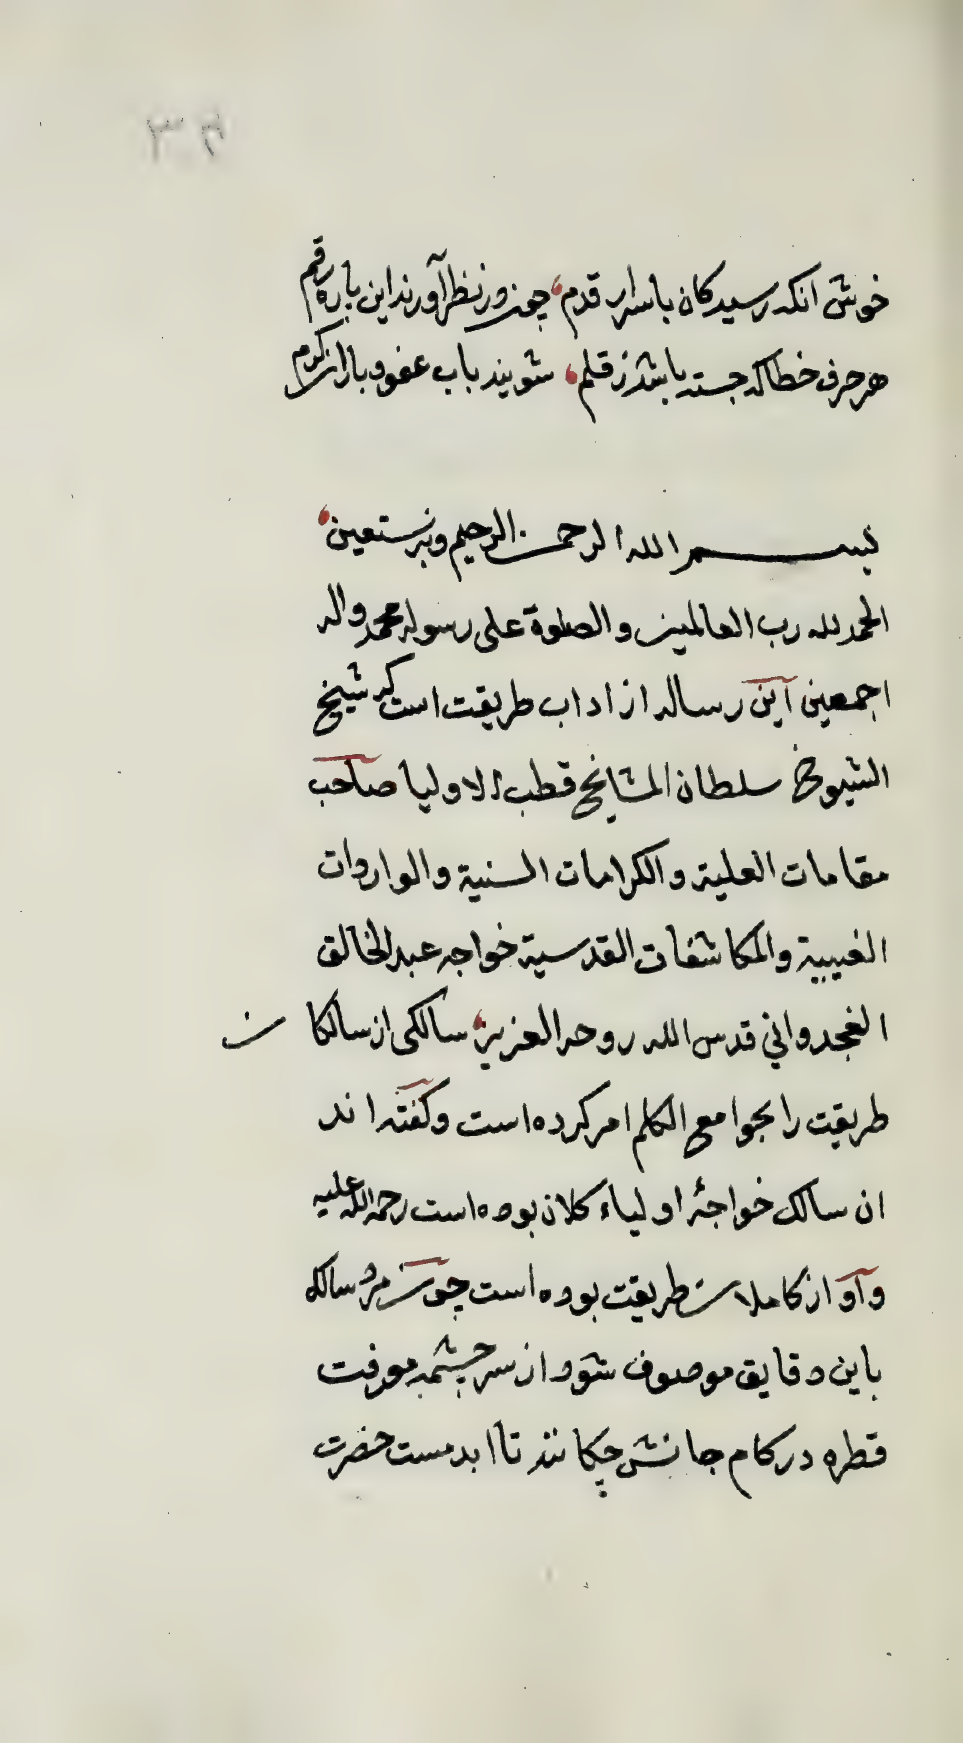 خوش انکه رسیدکان باسرار قدم چون در نظر آورند این پاره رقم
هر حرف خطا که جسته باشد ز قلم شویند باب عفو و باران کرم
بسم الله الرحمن الرحیم وبه نستعین
الحمد لله رب العالمین والصلوة علی رسوله محمد واله
اجمعین این رساله از اداب طریقت است که شیخ
الشیوخ سلطان المشایخ قطب الاولیا صاحب
مقامات العلیة والکرامات السنیة والواردات
الغیبیة والمکاشفات القدسیة خواجه عبد الخالق
الغجدوانی قدس الله روحه العزیز سالکی از سالکان
طریقت را بجوامع الکلم امر کرده است وکفته اند
ان سالک خواجۀ اولیاء کلان بوده است رحمة الله علیه
واو از کاملان طریقت بوده است چون مرد سالک
باین دقایق موصوف شود از سرچشمه معرفت
قطره در کام جانش چکانند تا ابد مست حضرت